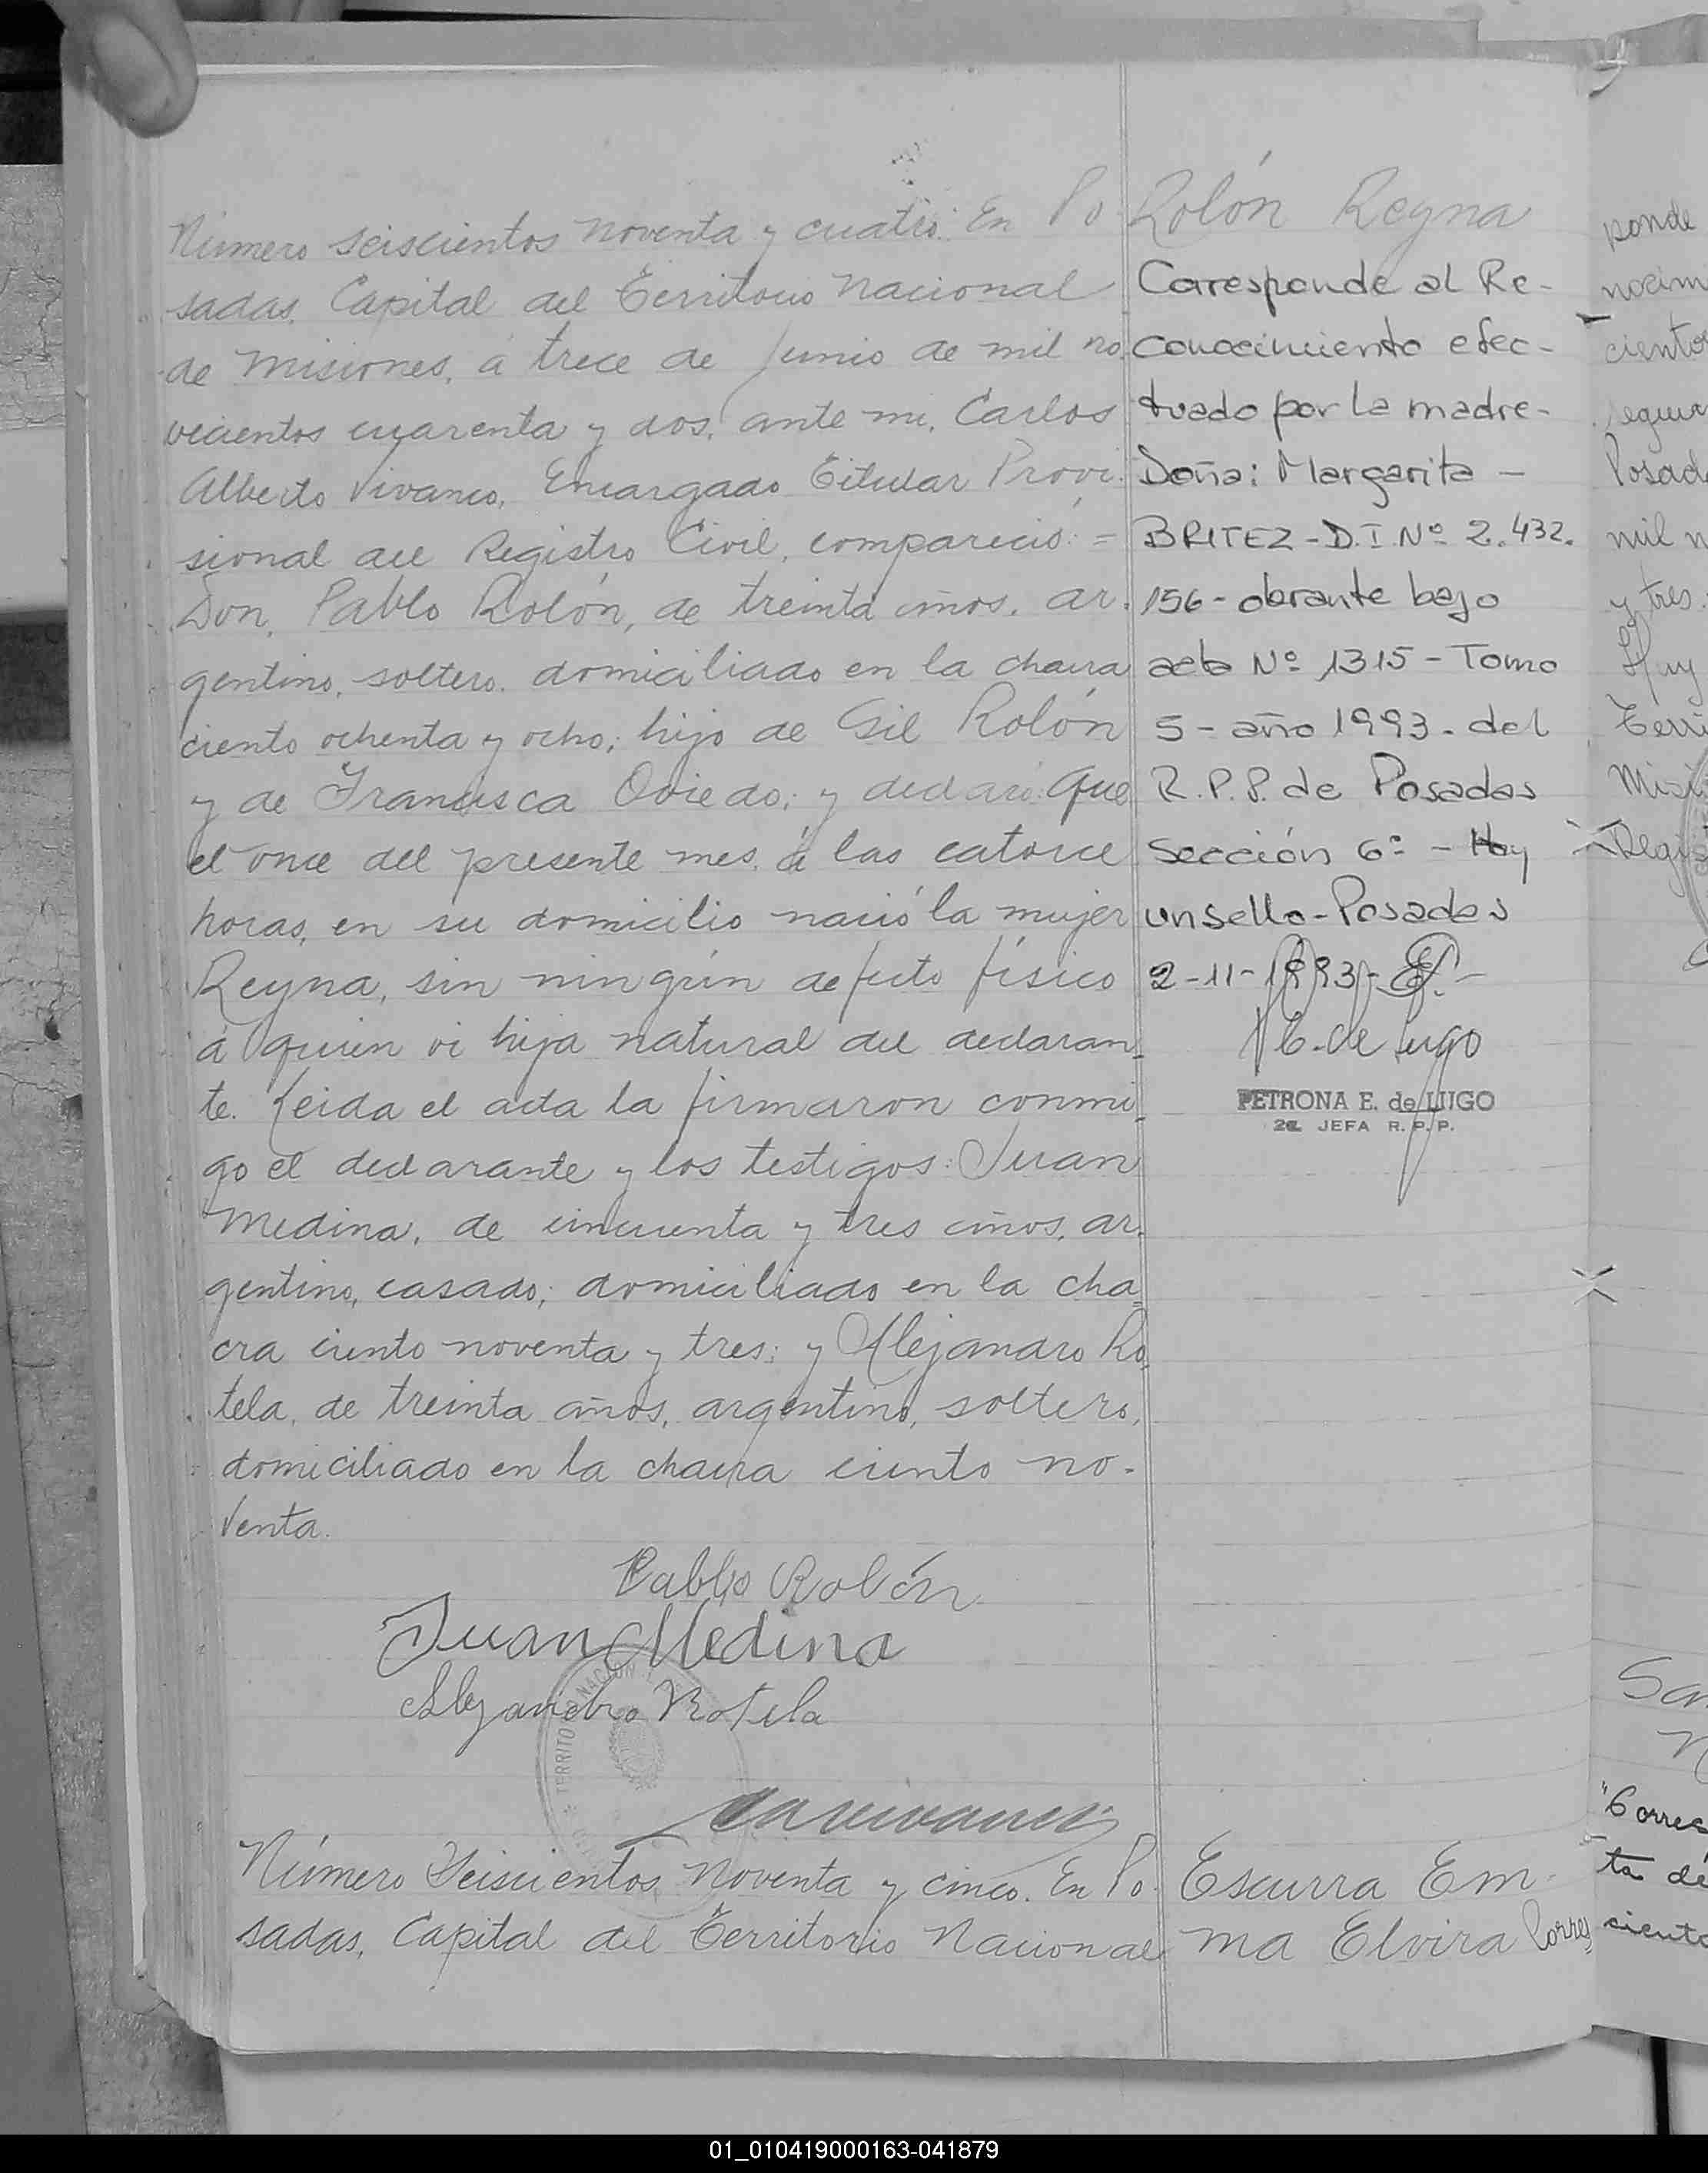 Número seiscientos noventa y cuatro. En Po
sadas, Capital del Territorio Nacional
de Misiones, á trece de Junio de mil no
vecientos cuarenta y dos, ante mi, Carlos
Alberto Vivanco, Encargado Titular Provi
sional del Registro Civil, compareció: =
Don, Pablo Rolón, de treinta años, ar.
gentino, soltero, domiciliado en la chacra
ciento ochenta y ocho; hijo de Gil Rolón
y de Francisca Oviedo; y declaró: Que
el once del presente mes, á las catorce
horas, en su domicilio nació la mujer
Reyna, sin ningún defecto físico
á quien vi hija natural del declaran_
te. Leida el acta la firmaron conmi_
go el declarante y los testigos: Juan
Medina, de cincuenta y tres años, ar.
gentino, casado; domiciliado en la cha_
cra ciento noventa y tres; y Alejandro Ro_
tela, de treinta años, argentino, soltero,
domiciliado en la chacra ciento no-
venta.
Pablo Rolón
Juan Medina
Alejandro Rotela
TERRITORIO NACION
Número Seiscientos noventa y cinco. En Po.
sadas, Capital del Territorio Nacional
Rolón Reyna
Corresponde al Re-
conocimiento efec-
tuado por la madre-
Doña: Margarita -
BRITEZ - D.I. Nº 2.432.
156 - obrante bajo
acta Nº 1315 - Tomo
5 - año 1993 - del
R.P.P. de Posadas
Sección 6º - Hay
un sello - Posadas
2-11-1993-
E. de Lugo
PETRONA E. de LUGO
JEFA R. P. P.
Escurra Em-
ma Elvira Corres
ponde
nocim
ciento
Posad
mil n
y tres
Hay
Terri
Misi
Regis
"Corres
ta de
ciento
01_010419000163-041879